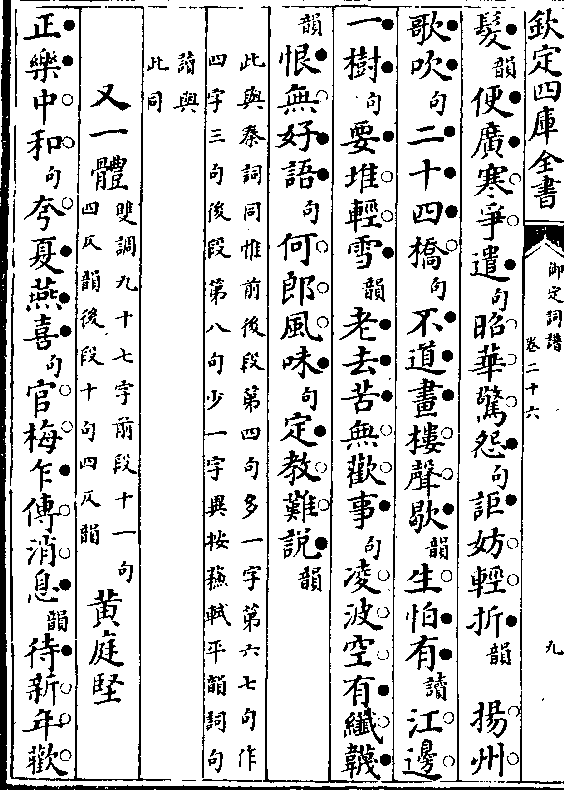 欽定四庫全書
御定詞譜
卷二十六
九
髮韻便廣寒爭遣句昭華驚怨句詎妨輕折韻　揚州
歌吹句二十四橋句不道畫樓聲歇韻生怕有讀江邊
一樹句要堆輕雪韻老去苦無歡事句凌波空有纖韈
韻恨無好語句何郎風味句定教難說韻
此與秦詞同惟前後段第四句多一字第六七句作
四字三句後段第八句少一字異按蘇軾平韻詞句
讀與
此同
又一體雙調九十七字前段十一句
四仄韻後段十句四仄韻　黃庭堅
正樂中和句夸夏燕喜句官梅乍傳消息韻待新年歡